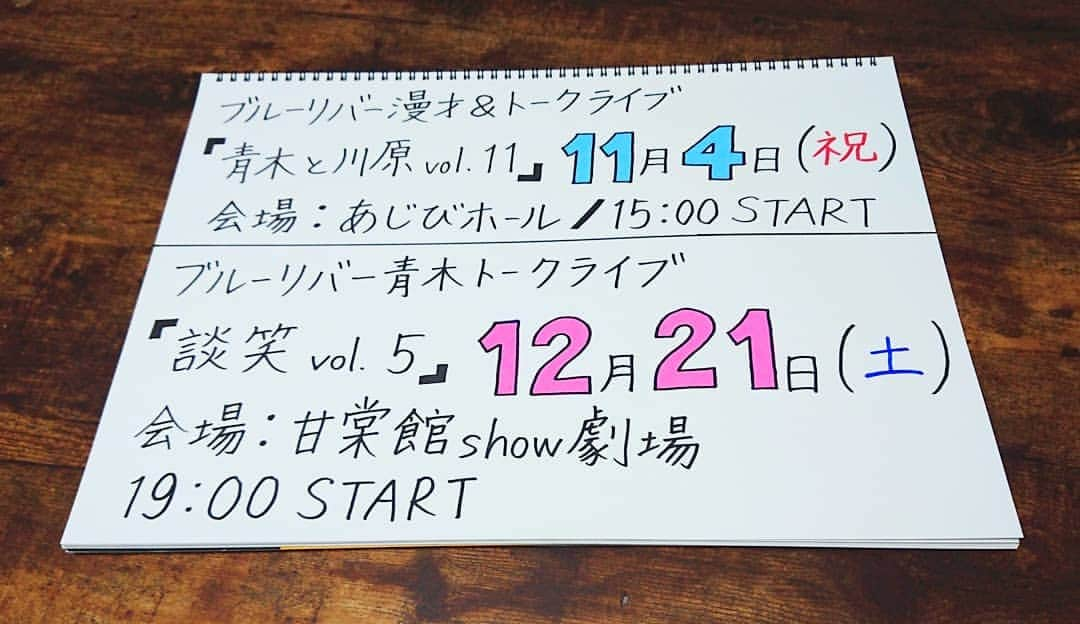 ブルーリバー漫才&トークライブ
『青木と川原 vol.11』 11月4日(祝)
会場：あじびホール/15:00 START
ブルーリバー青木トークライブ
『談笑 vol.5』 12月21日(土)
会場：甘棠館show劇場
19:00 START